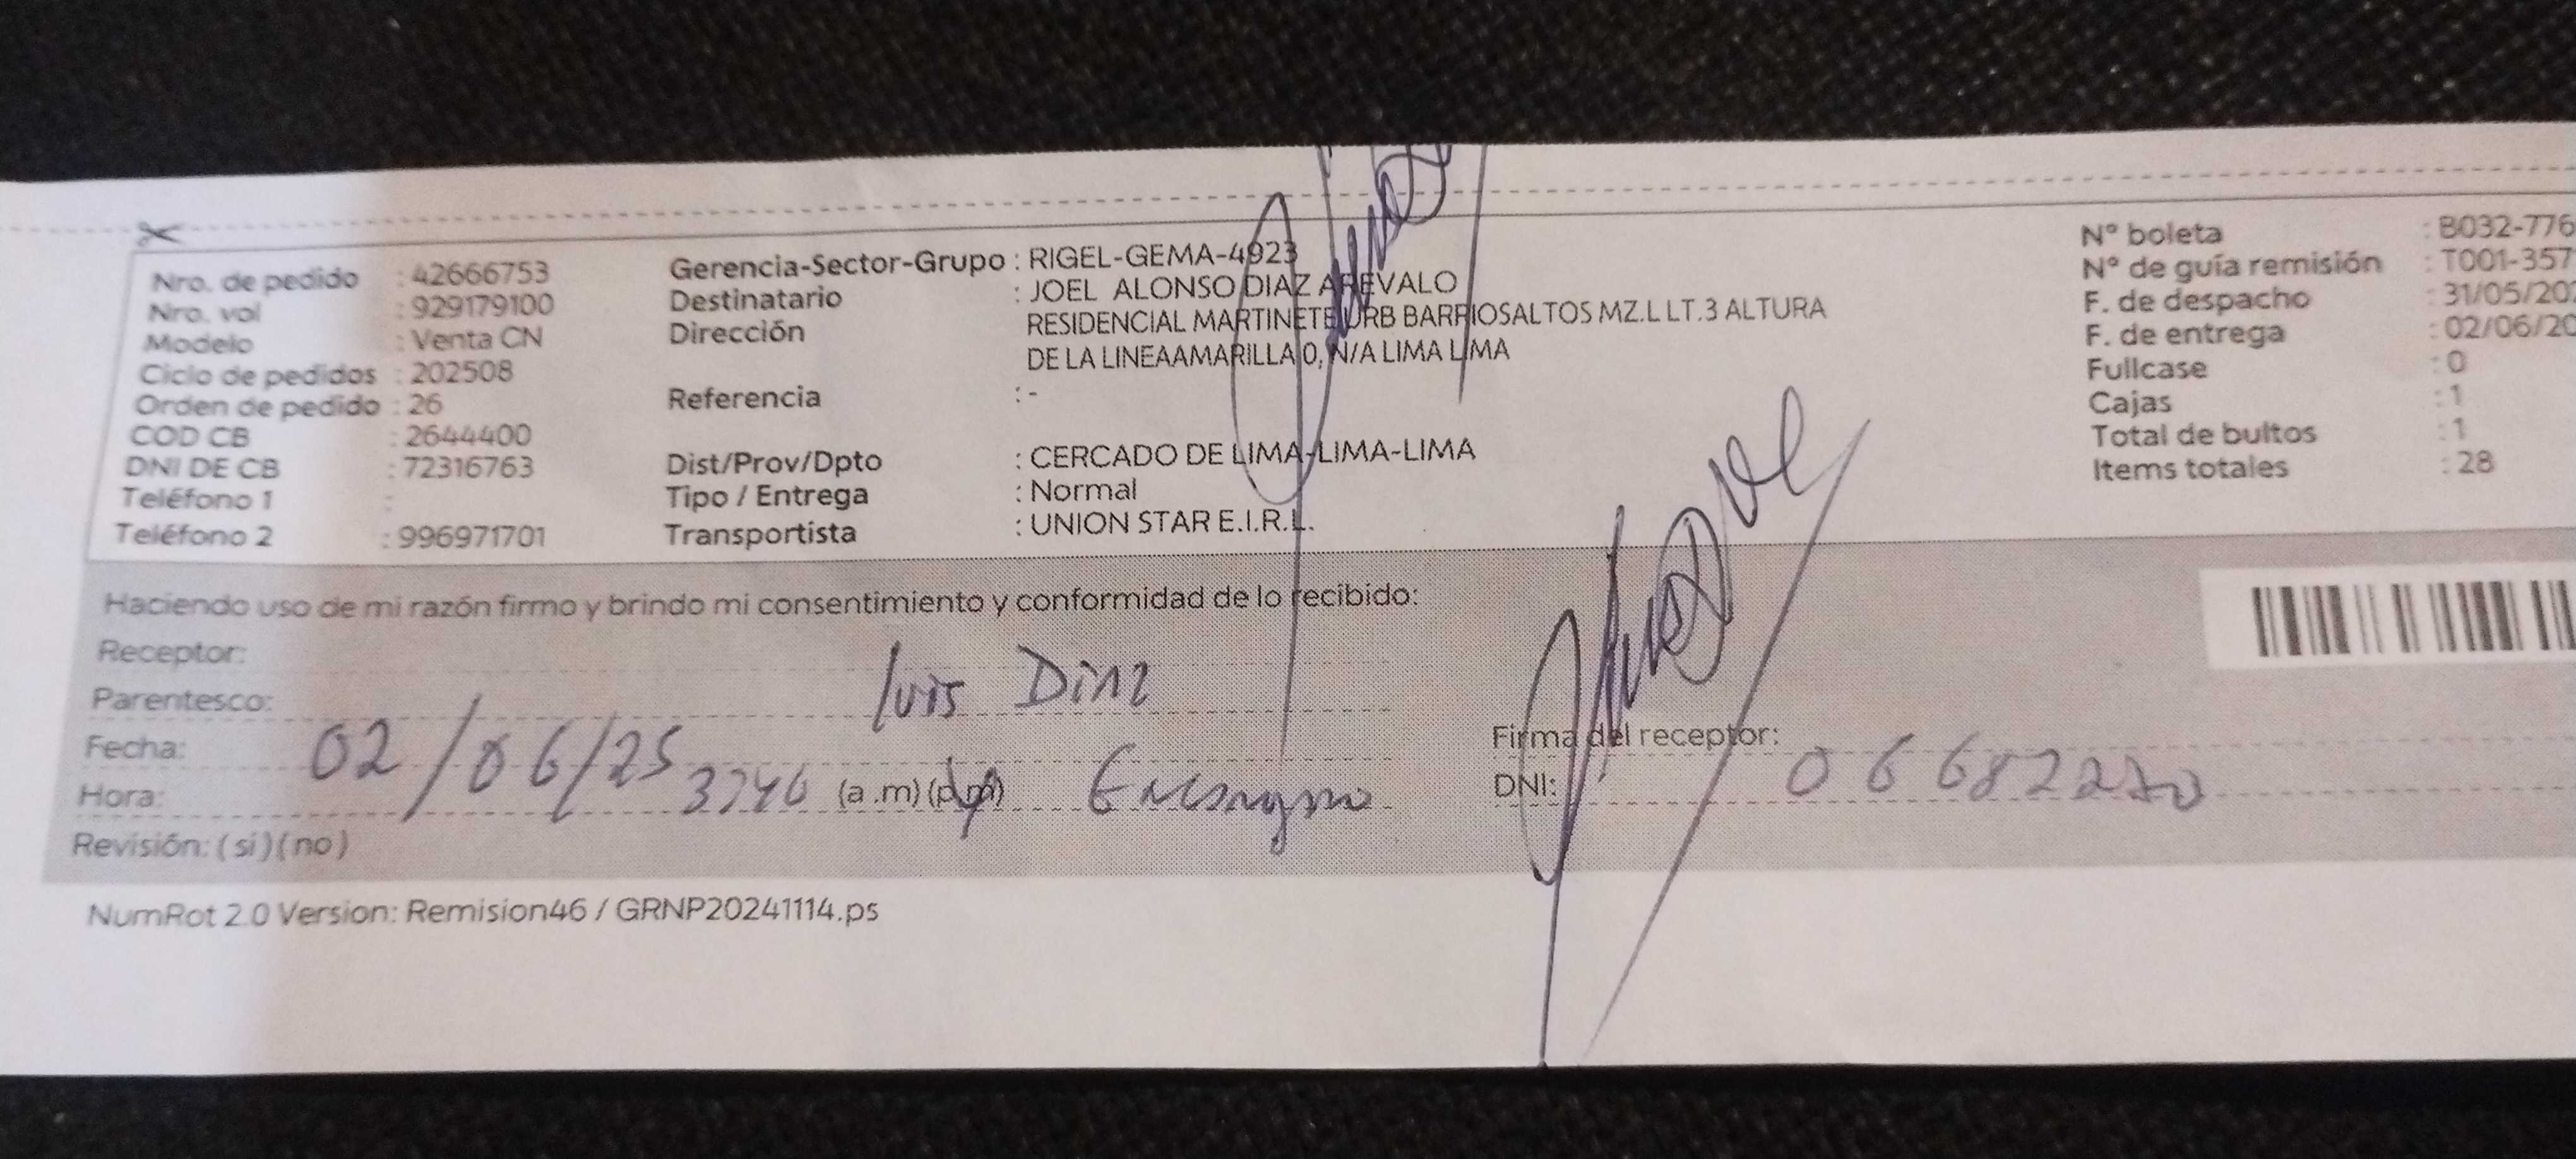 Nro. de pedido : 42666753
Nro. vol : 929179100
Modelo : Venta CN
Ciclo de pedidos : 202508
Orden de pedido : 26
COD CB : 2644400
DNI DE CB : 72316763
Teléfono 1 :
Teléfono 2 : 996971701
Gerencia-Sector-Grupo : RIGEL-GEMA-4923
Destinatario : JOEL ALONSO DIAZ AREVALO
Dirección RESIDENCIAL MARTINETE URB BARRIOSALTOS MZ.L LT.3 ALTURA
DE LA LINEAAMARILLA 0, N/A LIMA LIMA
Referencia : -
Dist/Prov/Dpto : CERCADO DE LIMA-LIMA-LIMA
Tipo / Entrega : Normal
Transportista : UNION STAR E.I.R.L.
N° boleta : B032-776
N° de guía remisión : T001-357
F. de despacho : 31/05/202
F. de entrega : 02/06/20
Fullcase : 0
Cajas : 1
Total de bultos : 1
Items totales : 28
Haciendo uso de mi razón firmo y brindo mi consentimiento y conformidad de lo recibido:
Receptor:
Luis Diaz
Parentesco:
Fecha: 02/06/25
Hora: (a.m) (p.m)
Revisión: (si) (no)
Firma del receptor:
DNI:
NumRot 2.0 Version: Remision46 / GRNP20241114.ps